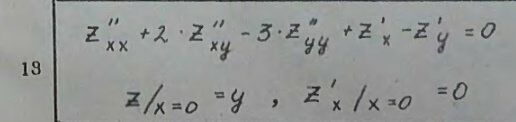 z''xx + 2 · z''xy - 3 · z''yy + z'x - z'y = 0
13
z/x=0 = y , z'x/x=0 = 0